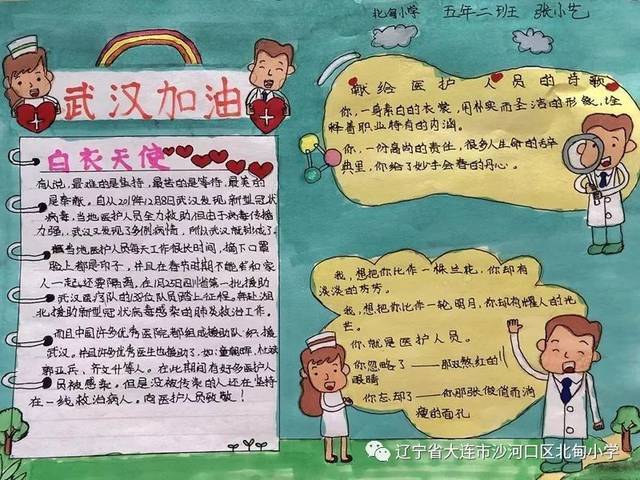 北甸小学 五年二班 张小艺
武汉加油
白衣天使
有人说，最难的是坚持，最苦的是等待，最美的
是奉献。自从2019年12月8日武汉发现新型冠状
病毒，当地医护人员全力救助，但由于病毒传播
力强，武汉发现多例病情，所以武汉就封城了。
当地医护人员每天工作很长时间，摘下口罩
脸上都是印子，并且在春节时期不能坐和家
人一起，还要隔离，在1月25日四川省第一批援助
武汉医疗队的138位队员踏上征程。奔赴湖
北援助新型冠状病毒感染的肺炎救治工作。
而且中国许多优秀医院都组成援助队，给援
武汉。并且许多优秀医生也援助了，如：童朝晖，杜斌
郭亚兵，齐文升等人。在此期间有好多医护人
员被感染。但是没被传染的人还在坚持
在一线，救治病人。向医护人员致敬！
献给医护人员的诗歌
你，一身素白的衣裳，用朴实而圣洁的形象，诠
释着职业特有的内涵。
你，一份高尚的责任，很多人生命的辞
典里，你给了妙手会春的丹心。
我，想把你比作一株兰花，你却有
淡淡的芬芳。
我，想把你比作一轮明月，你却有惺人的光
芒。
你，就是医护人员。
你忽略了——那双熬红的
眼睛
你忘却了——你那张俊俏而消
瘦的面孔
辽宁省大连市沙河口区北甸小学